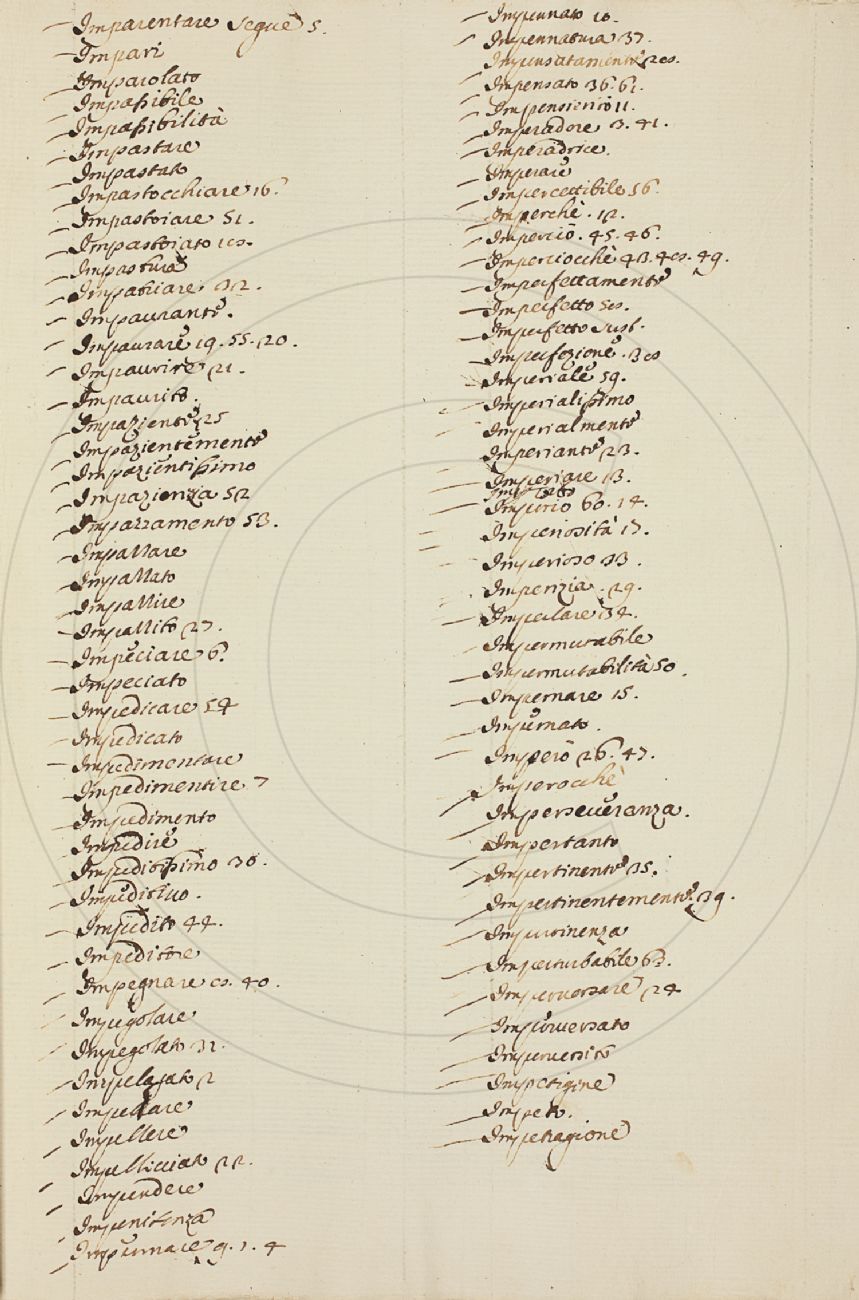 Imparentare Segue 5.
Impari
Imparolato
Impassibile
Impassibilità
Impastare
Impastato
Impastocchiare 16.
Impastoiare 51.
Impastoiato
Impastura
Impatriare 32.
Impaurante.
Impaurare 19. 55. 20.
Impaurire 21.
Impaurito.
Impaziente 25
Impazientemente
Impazientissimo
Impazienza 52
Impazzamento 53.
Impazzare
Impazzato
Impazzire
Impazzito 27.
Impeciare 6.
Impeciato
Impedicare 54
Impedicato
Impedimentare
Impedimentire 7
Impedimento
Impedire
Impeditissimo 30.
Impeditivo.
Impedito 44.
Impeditore
Impegnare 40.
Impegolare
Impegolato 31.
Impelagato 2
Impellare
Impellere
Impellicciato 22.
Impendere
Impenitenza
Impennare 9. 1. 4
Impennato 10.
Impennatura 37.
Impensatamente
Impensato 36. 61.
Impensierirò 11.
Imperadore 3. 41.
Imperadrice.
Imperare
Impercettibile 56
Imperchè. 12.
Imperciò. 45. 46.
Imperciocchè 49.
Imperfettamente
Imperfetto
Imperfetto Sust.
Imperfezione.
Imperiale 59.
Imperialissimo
Imperialmente
Imperiante 23.
Imperiare 13.
Imperio 60. 14.
Imperiosità 17.
Imperioso 33.
Imperizia. 29.
Imperlare 34.
Impermutabile
Impermutabilità 50.
Impernare 15.
Impernato.
Imperò 26. 47.
Imperocchè
Imperseveranza.
Impertanto
Impertinente 35.
Impertinentemente 39.
Impertinenza
Imperturbabile 63.
Imperversare 24
Imperversato
Imperversito
Impetigine
Impeto.
Impetragione